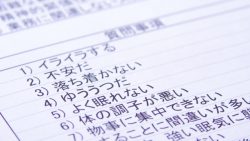 質問事項
1) イライラする
2) 不安だ
3) 落ち着かない
4) ゆううつだ
5) よく眠れない
6) 体の調子が悪い
7) 物事に集中できない
することに間違いが多い
強い眠気に